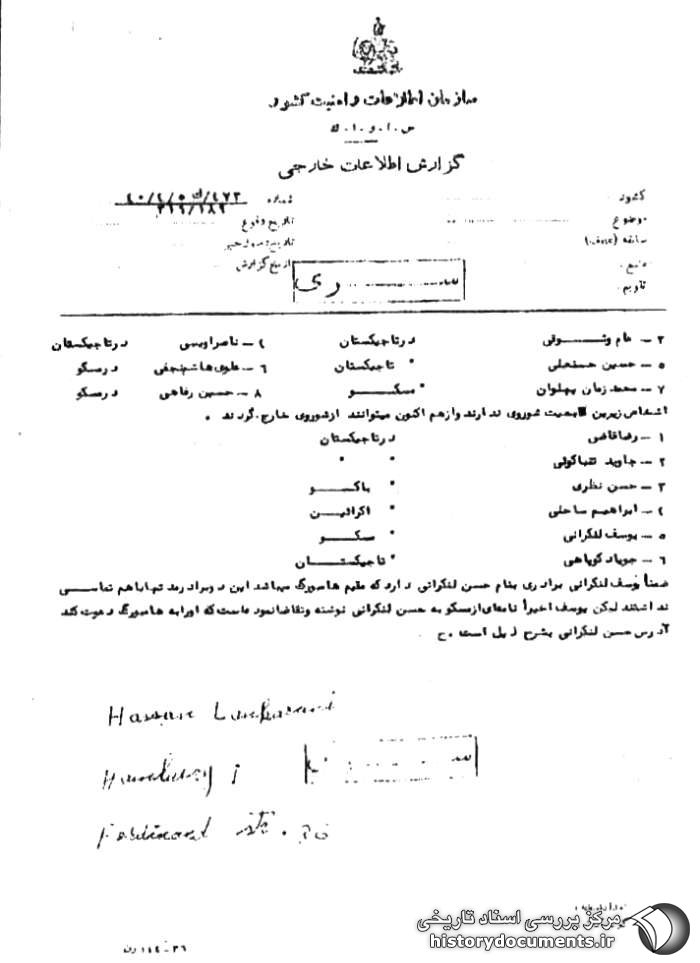 سازمان اطلاعات و امنیت کشور
س.ا.و.ا.ک
گزارش اطلاعات خارجی
کشور
موضوع
سابقه
منبع
تقویم
شماره
تاریخ وقوع
تاریخ گزارش
سری
۳ – در تاجیکستان ٤ – ناصر اویسی در تاجیکستان
۵ – حسین حسنعلی " تاجیکستان ۶ – علوی هاشم نجفی در مسکو
۷ – محمد زمان پهلوان " مسکو ۸ – حسین رفاهی در مسکو
اشخاص زیرین تابعیت شوروی ندارند و از هم اکنون میتوانند از شوروی خارج گردند .
۱ – رضا قاضی در تاجیکستان
۲ – جاوید " "
۳ – حسن نظری " باکو
٤ – ابراهیم ساحلی " اکراین
۵ – یوسف لنکرانی " مسکو
۶ – " تاجیکستان
ضمناً یوسف لنکرانی برادری بنام حسن لنکرانی دارد که مقیم هامبورگ میباشد این دو برادر مدتها باهم تماسی
نداشتند لیکن یوسف اخیراً نامه‌ای از مسکو به حسن لنکرانی نوشته و تقاضا نموده است که او را به هامبورگ دعوت کند
آدرس حسن لنکرانی بشرح ذیل است . ح
Hassan Lankarani
Hamburg 1
سری
مرکز بررسی اسناد تاریخی
historydocuments.ir